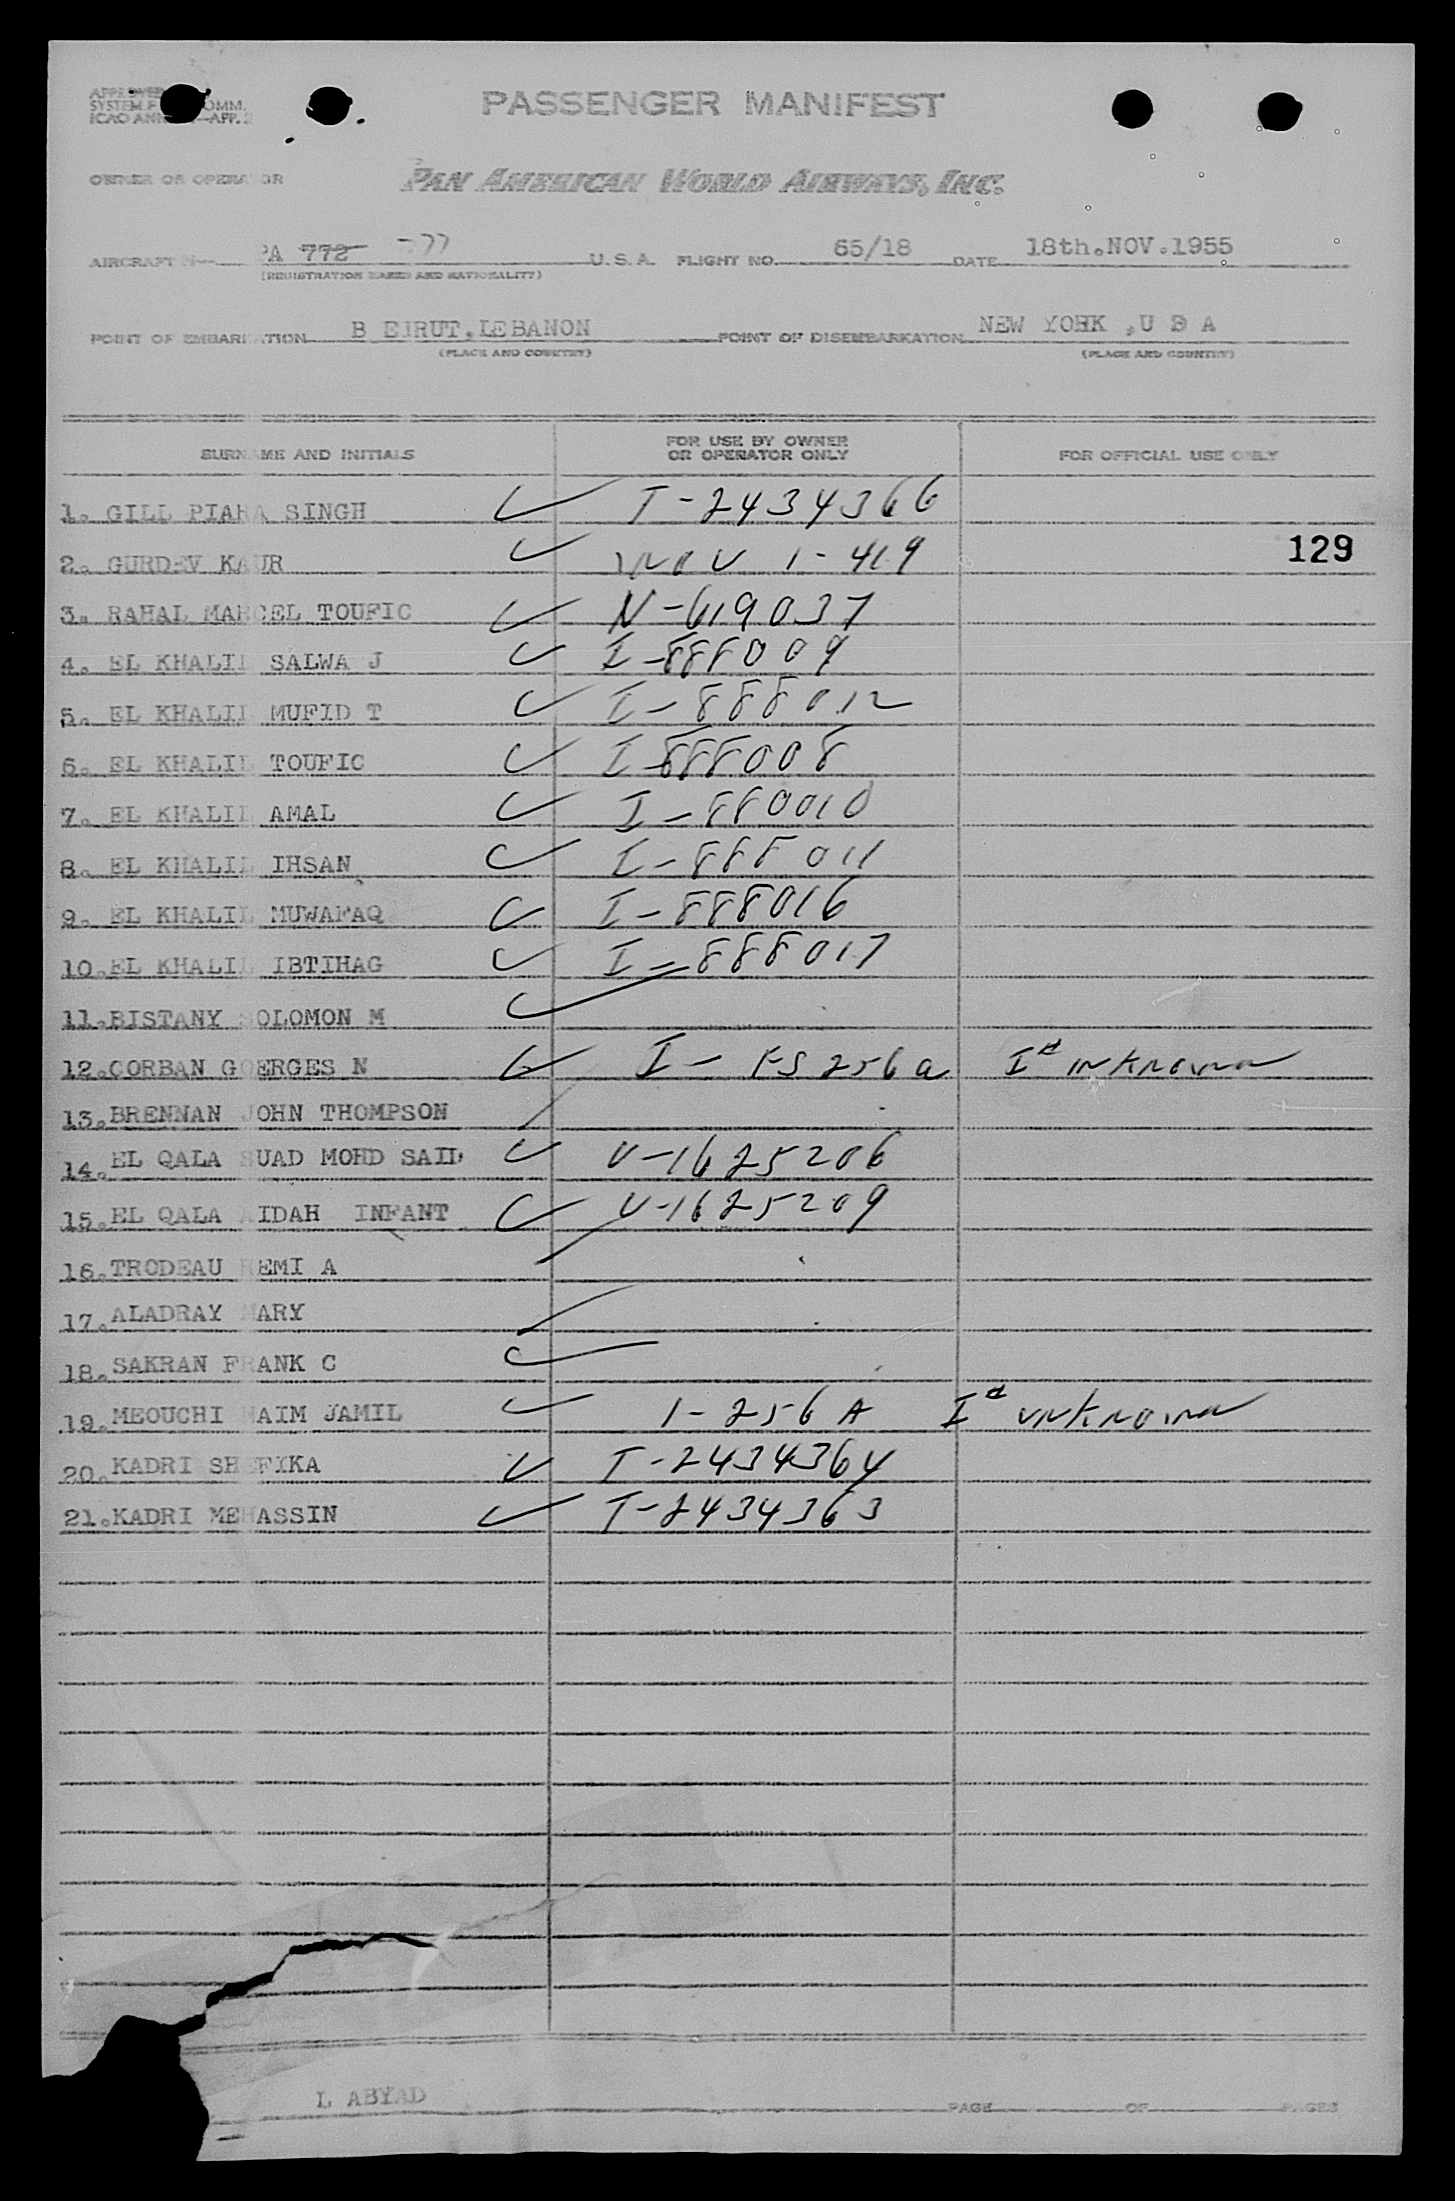 PASSENGER MANIFEST
ICAO
OWNER OR OPERATOR PAN AMERICAN WORLD AIRWAYS, INC.
AIRCRAFT PA 772 777 U.S.A. FLIGHT NO. 65/18 DATE 18th.NOV.1955
(REGISTRATION MARKS AND NATIONALITY)
POINT OF EMBARKATION B EIRUT.LEBANON POINT OF DISEMBARKATION NEW YORK ,U S A
(PLACE AND COUNTRY) (PLACE AND COUNTRY)
SURNAME AND INITIALS FOR USE BY OWNER OR OPERATOR ONLY FOR OFFICIAL USE ONLY
1. GILL PIARA SINGH T-2434366
2. GURDEV KAUR 129
3. RAHAL MARCEL TOUFIC N-619037
4. EL KHALIL SALWA J I-888009
5. EL KHALIL MUFID T I-888012
6. EL KHALIL TOUFIC I-888008
7. EL KHALIL AMAL I-880010
8. EL KHALIL IHSAN I-888011
9. EL KHALIL MUWAFAQ I-888016
10.EL KHALIL IBTIHAG I-888017
11.BISTANY SOLOMON M
12.CORBAN GOERGES N I- FS 256a Id unknown
13.BRENNAN JOHN THOMPSON
14.EL QALA SUAD MOHD SAID V-1625206
15.EL QALA AIDAH INFANT V-1625209
16.TRODEAU REMI A
17.ALADRAY MARY
18.SAKRAN FRANK C
19.MEOUCHI NAIM JAMIL 1-256A Id unknown
20.KADRI SHEFIKA T-2434364
21.KADRI MEHASSIN T-2434363
L ABYAD PAGE OF PAGES